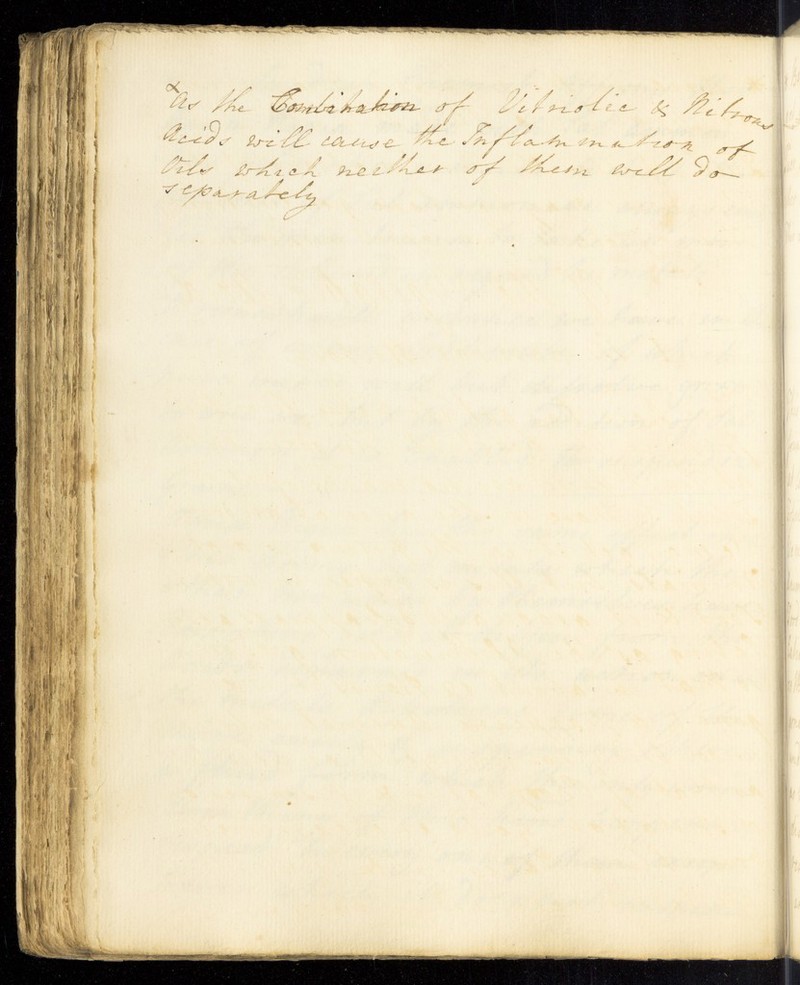 x As the Combination of Vitriolic & Nitrous
Acids will cause the Inflammation of
Oils which neither of them will do
separately